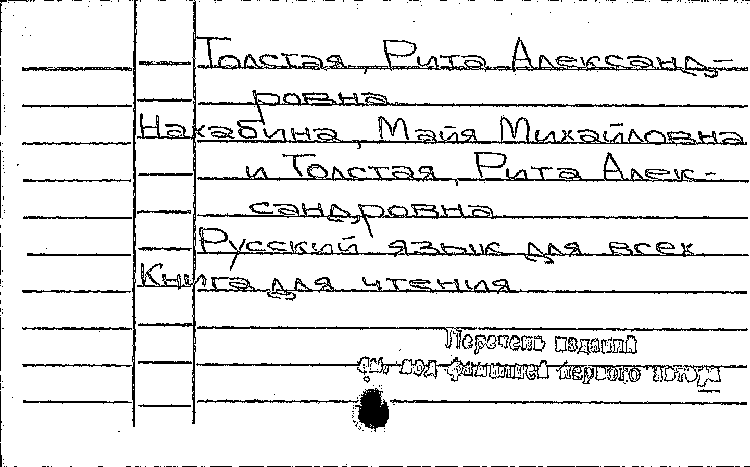 Толстая, Рита Александ-
ровна
Накабина, Майя Михайловна
и Толстая, Рита Алек-
сандровна
Русский язык для всех
Книга для чтения
Перечень изданий
см. под фамилией первого автора